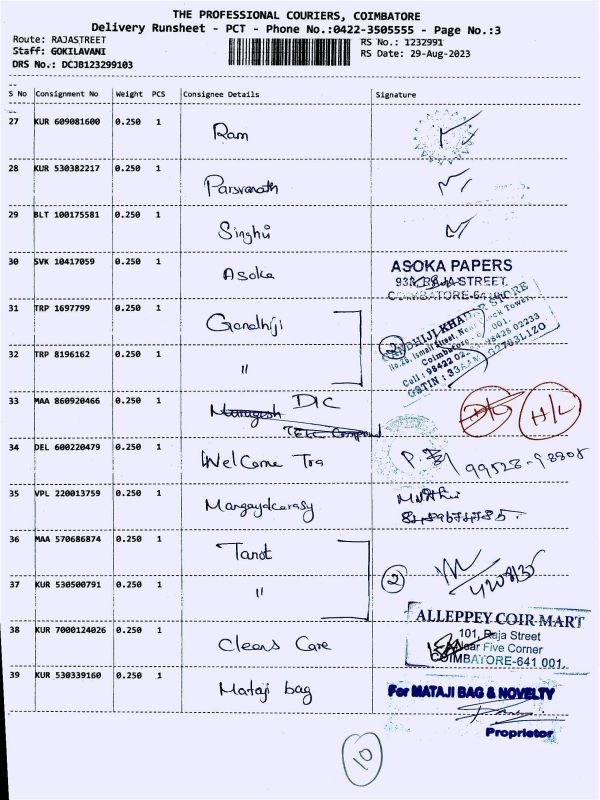 THE PROFESSIONAL COURIERS, COIMBATORE
Delivery Runsheet - PCT - Phone No.:0422-3505555 - Page No.:3
Route: RAJASTREET
Staff: GOKILAVANI
DRS No.: DCJB123299103
RS No.: 1232991
RS Date: 29-Aug-2023
S No Consignment No Weight PCS Consignee Details Signature
27 KUR 609081600 0.250 1 Ram
28 KUR 530382217 0.250 1 Parsvanath
29 BLT 100175581 0.250 1 Singhvi
30 SVK 10417059 0.250 1 Asoka
ASOKA PAPERS
RAJA STREET,
COIMBATORE-641
31 TRP 1697799 0.250 1 Gandhiji
2
GANDHIJI KHADAR STORE
No.46, Ismail Street, Near Clock Tower,
Coimbatore - 001.
Cell : 98422 02 98428 02233
GSTIN : 33AAM
32 TRP 8196162 0.250 1 "
33 MAA 860920466 0.250 1 Murugesh DIC
TEXE Compound
D/L H/L
34 DEL 600220479 0.250 1 Welcome Tra
35 VPL 220013759 0.250 1
36 MAA 570686874 0.250 1 Tarot
2
37 KUR 530500791 0.250 1 "
38 KUR 7000124026 0.250 1 Cleans Care
ALLEPPEY COIR MART
101, Raja Street
Near Five Corner
COIMBATORE-641 001.
39 KUR 530339160 0.250 1 Mataji bag
For MATAJI BAG & NOVELTY
Proprietor
10